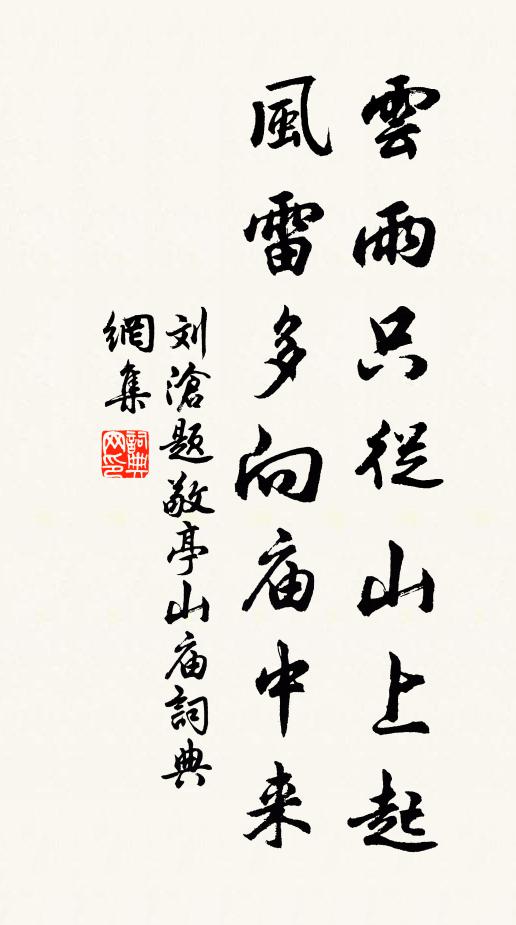 雲雨只從山上起
風雷多向庙中来
刘滄题敬亭山庙詞典
網集
詞典网印